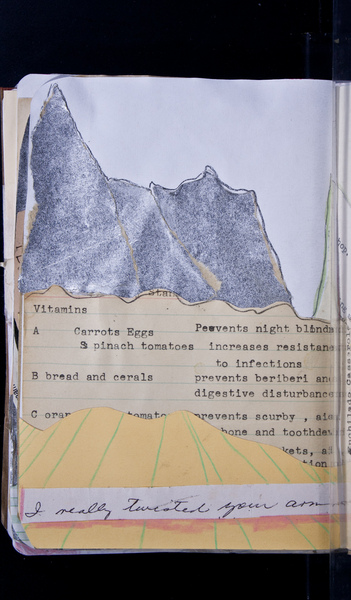 stan
Vitamins
A Carrots Eggs Peevents night blindn
S pinach tomatoes increases resistance
to infections
B bread and cerals prevents beriberi and
digestive disturbance
C oran tomato prevents scurby , aid
bone and toothde
kets, a
tion
I really twisted your arm